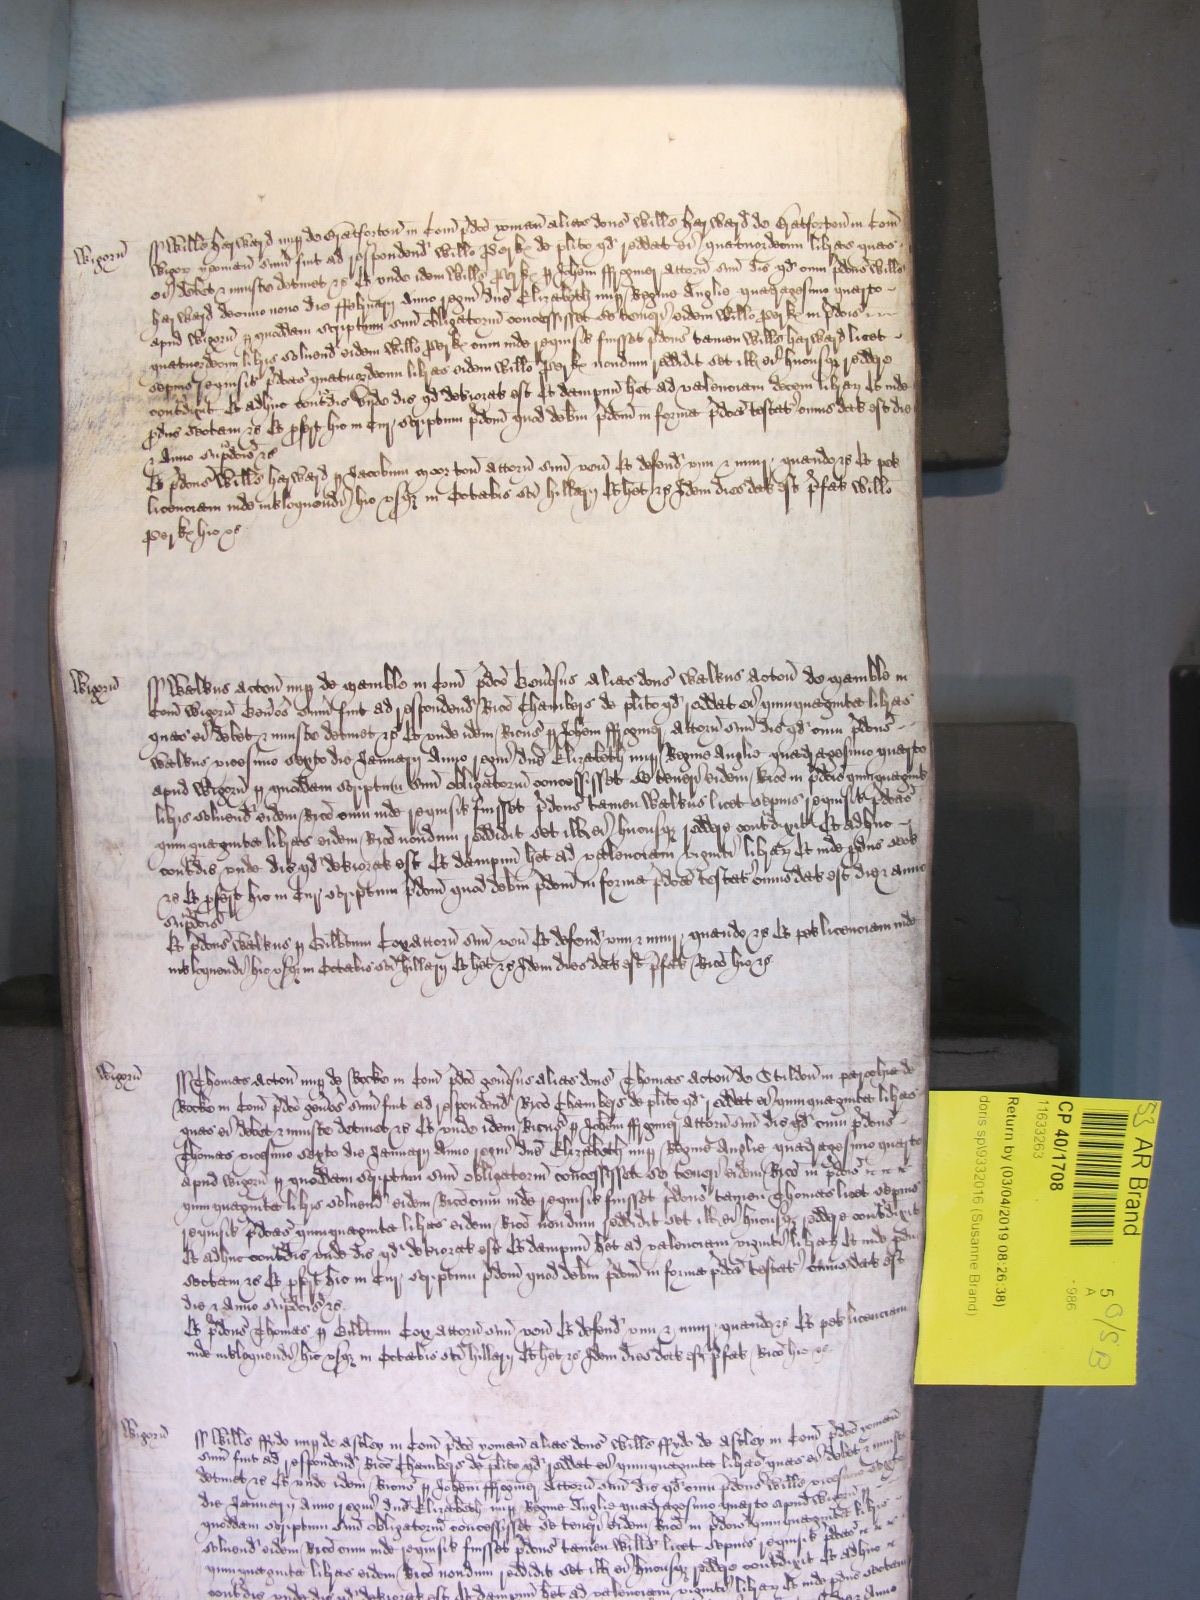 Wigorn̄ ss Willus Hayward nup de in Com̄ p̄dc̄o yoman alias dc̄us Willus Hayward de in Com̄
Wigorn yoman sum̄ fuit ad respondend Willo Perkx de plito qd reddat ei quatuordecim libras quas
ei debet & iniuste detinet &c Et unde idem Willus Perkx p Johem attorn suu dic qd cum p̄dc̄us Willus
Hayward decimo nono die Februarij Anno regni dn̄e Elizabeth nup Regine Anglie quadragesimo quarto
apud Wigorn p quoddam scriptum suu obligatorium concessisset se teneri eidem Willo Perkx in p̄dc̄is
quatuordecim libris solvend eidem Willo Perkx cum inde requisit fuisset p̄dc̄us tamen Willus Hayward licet
sepius requisit p̄dc̄as quatuordecim libras eidem Willo Perkx nondum reddidit set ill ei hucusq reddere
contradixit Et adhuc contradic Unde dic qd deteriorat est Et dampnu het ad valenciam decem librar Et inde
produc sectam &c Et profert hic in Cur scriptum p̄dc̄m quod debitum p̄dc̄m in forma p̄dc̄a testat cuius dat est die
& Anno supradc̄is &c
Et p̄dc̄us Willus Hayward p Jacobum attorn suu ven Et defend vim & iniur quando &c Et pet
licenciam inde interloquendi hic usq in Octabis sci Hillarij Et het &c Idem dies dat est p̄fat Willo
Perkx hic &c
Wigorn̄ ss Walterus Acton nup de Mamble in Com̄ p̄dc̄o Generosus alias dc̄us Walterus Acton de Mamble in
Com̄ Wigorn Generos sum̄ fuit ad respondend Rico Chambers de plito qd reddat ei quinquaginta libras
quas ei debet & iniuste detinet &c Et unde idem Ricus p Johem attorn suu dic qd cum p̄dc̄us
Walterus vicesimo sexto die Januarij Anno regni dn̄e Elizabeth nup Regine Anglie quadragesimo quarto
apud Wigorn p quoddam scriptum suu obligatorium concessisset se teneri eidem Rico in p̄dc̄is quinquaginta
libris solvend eidem Rico cum inde requisit fuisset p̄dc̄us tamen Walterus licet sepius requisit p̄dc̄as
quinquaginta libras eidem Rico nondum reddidit set ill ei hucusq reddere contradixit Et adhuc
contradic unde dic qd deteriorat est Et dampnu het ad valenciam viginti librar Et inde produc sect
&c Et profert hic in Cur scriptum p̄dc̄m quod debitum p̄dc̄m in forma p̄dc̄a testat cuius dat est die & anno
supradc̄is
Et p̄dc̄us Walterus p Gilbtum Cox attorn suu ven Et defend vim & iniur quando &c Et pet licenciam inde
interloquendi hic usq in Octabis sci Hillarij Et het &c Idem dies dat est p̄fat Rico hic &c
Wigorn̄ ss Thomas Acton nup de Rocke in Com̄ p̄dc̄o generosus alias dc̄us Thomas Acton de in parochia de
Rocke in Com̄ p̄dc̄o generos sum̄ fuit ad respondend Rico Chambers de plito qd reddat ei quinquaginta libras
quas ei debet & iniuste detinet &c Et unde idem Ricus p Johem attorn suu dic qd cum p̄dc̄us
Thomas vicesimo sexto die Januarij Anno regni dn̄e Elizabeth nup Regine Anglie quadragesimo quarto
apud Wigorn p quoddam scriptum suu obligatorium concessisset se teneri eidem Rico in p̄dc̄is
quinquaginta libris solvend eidem Rico cum inde requisit fuisset p̄dc̄us tamen Thomas licet sepius
requisit p̄dc̄as quinquaginta libras eidem Rico nondum reddidit set ill ei hucusq reddere contradixit
Et adhuc contradic unde dic qd deteriorat est Et dampnu het ad valenciam viginti librar Et inde produc
sectam &c Et profert hic in Cur scriptum p̄dc̄m quod debitum p̄dc̄m in forma p̄dc̄a testat cuius dat est
die & Anno supradc̄is &c
Et p̄dc̄us Thomas p Gilbtum Cox attorn suu ven Et defend vim & iniur quando &c Et pet licenciam
inde interloquendi hic usq in Octabis sci Hillarij Et het &c Idem dies dat est p̄fat Rico hic &c
Wigorn̄ ss Willus nup de Astley in Com̄ p̄dc̄o yoman alias dc̄us Willus de Astley in Com̄ p̄dc̄o yoman
sum̄ fuit ad respondend Rico Chambers de plito qd reddat ei quinquaginta libras quas ei debet & iniuste
detinet &c Et unde idem Ricus p Johem attorn suu dic qd cum p̄dc̄us Willus vicesimo sexto
die Januarij Anno regni dn̄e Elizabeth nup Regine Anglie quadragesimo quarto apud Wigorn p
quoddam scriptum suu obligatorium concessisset se teneri eidem Rico in p̄dc̄is quinquaginta libris
solvend eidem Rico cum inde requisit fuisset p̄dc̄us tamen Willus licet sepius requisit p̄dc̄as
quinquaginta libras eidem Rico nondum reddidit set ill ei hucusq reddere contradixit Et adhuc
contradic unde dic qd deteriorat est Et dampnu het ad valenciam viginti librar Et inde produc sectam
53 AR Brand
5
A
-986
CP 40/1708
11633263
Return by (03/04/2019 08:26:38)
doris sp\9332016 (Susanne Brand)